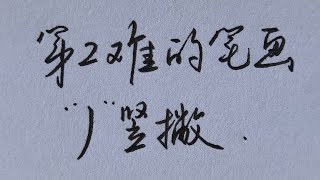 第2难的笔画
“丿”竖撇.